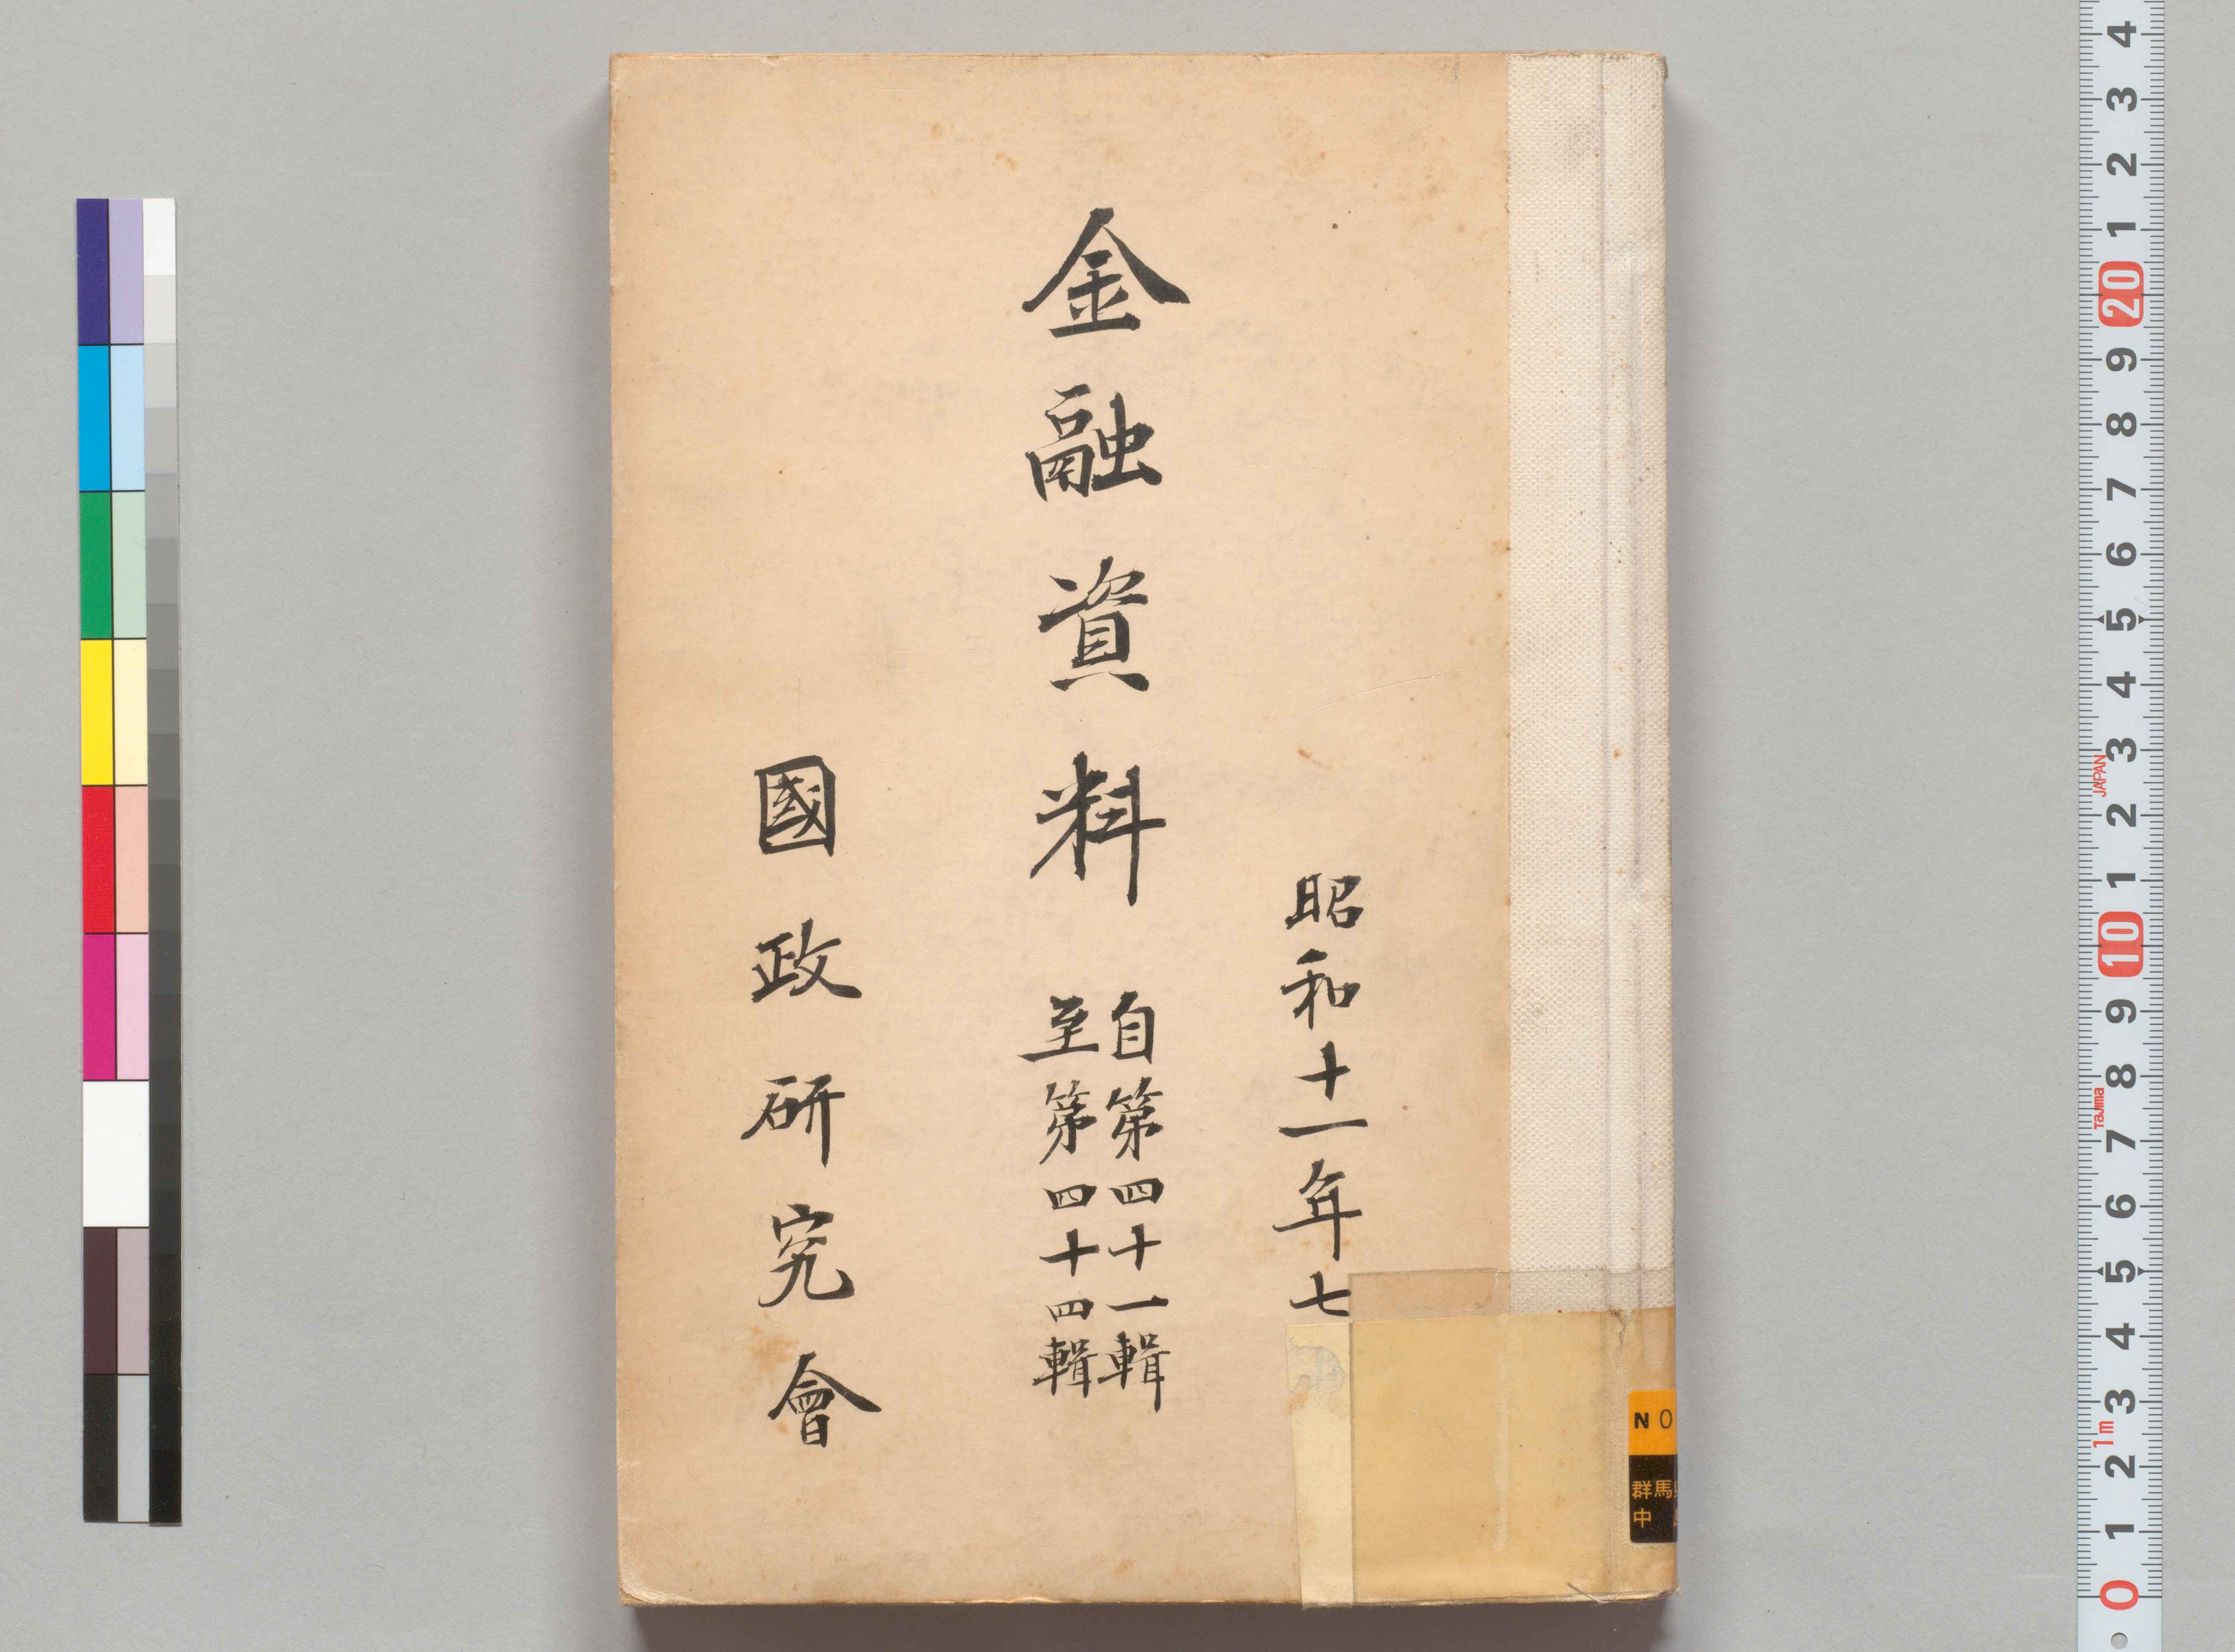 昭和十一年七
金融資料
自第四十一輯
至第四十四輯
國政研究會
N 0
群馬
中
4
3
2
1
20
9
8
7
6
5
4
3
JAPAN
2
1
10
9
8
Tajima
7
6
5
4
3
1m
2
1
0